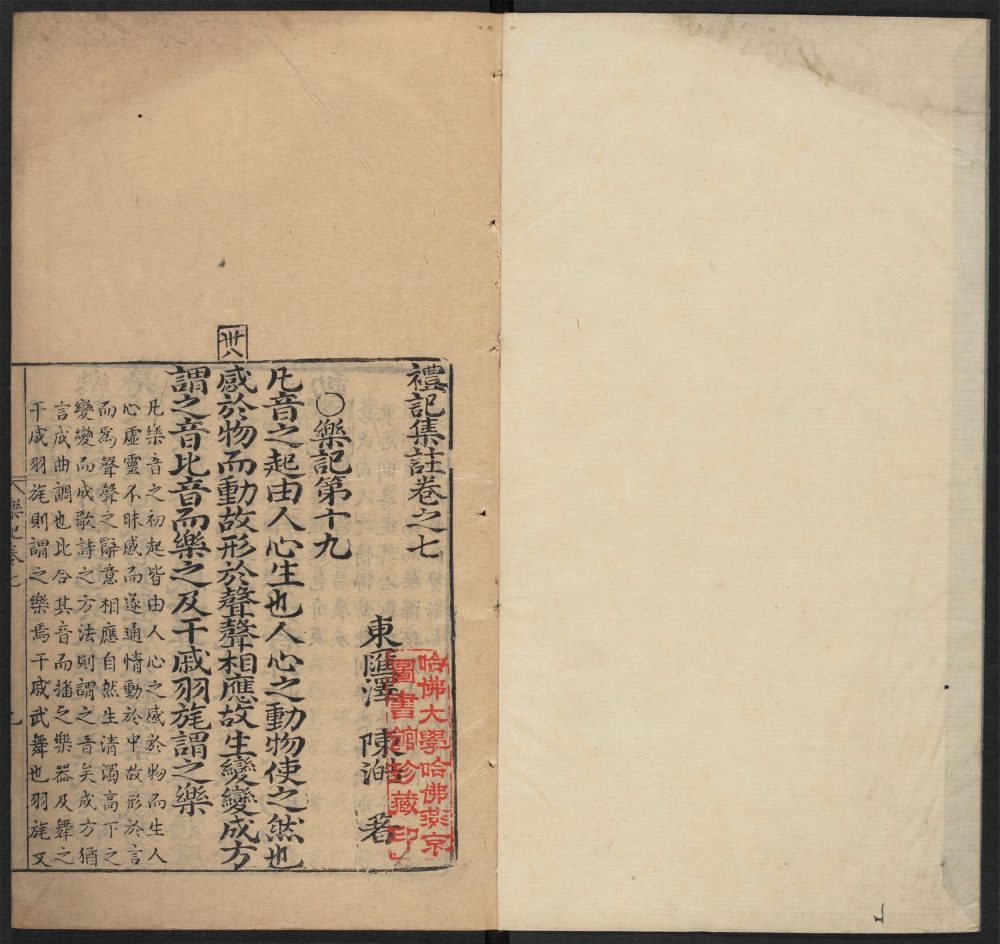 禮記集註卷之七
東匯澤 陳澔 著
哈佛大學哈佛燕京
圖書館珍藏印
〇樂記第十九
凡音之起由人心生也人心之動物使之然也
感於物而動故形於聲聲相應故生變變成方
謂之音比音而樂之及干戚羽旄謂之樂
凡樂音之初起皆由人心之感於物而生人
心虛靈不昧感而遂通情動於中故形於言
而爲聲聲之辭意相應自然生清濁高下之
變變而成歌詩之方法則謂之音矣成方猶
言成曲調也比合其音而播之樂器及舞之
干戚羽旄則謂之樂焉干戚武舞也羽旄文
卅八
樂記卷七